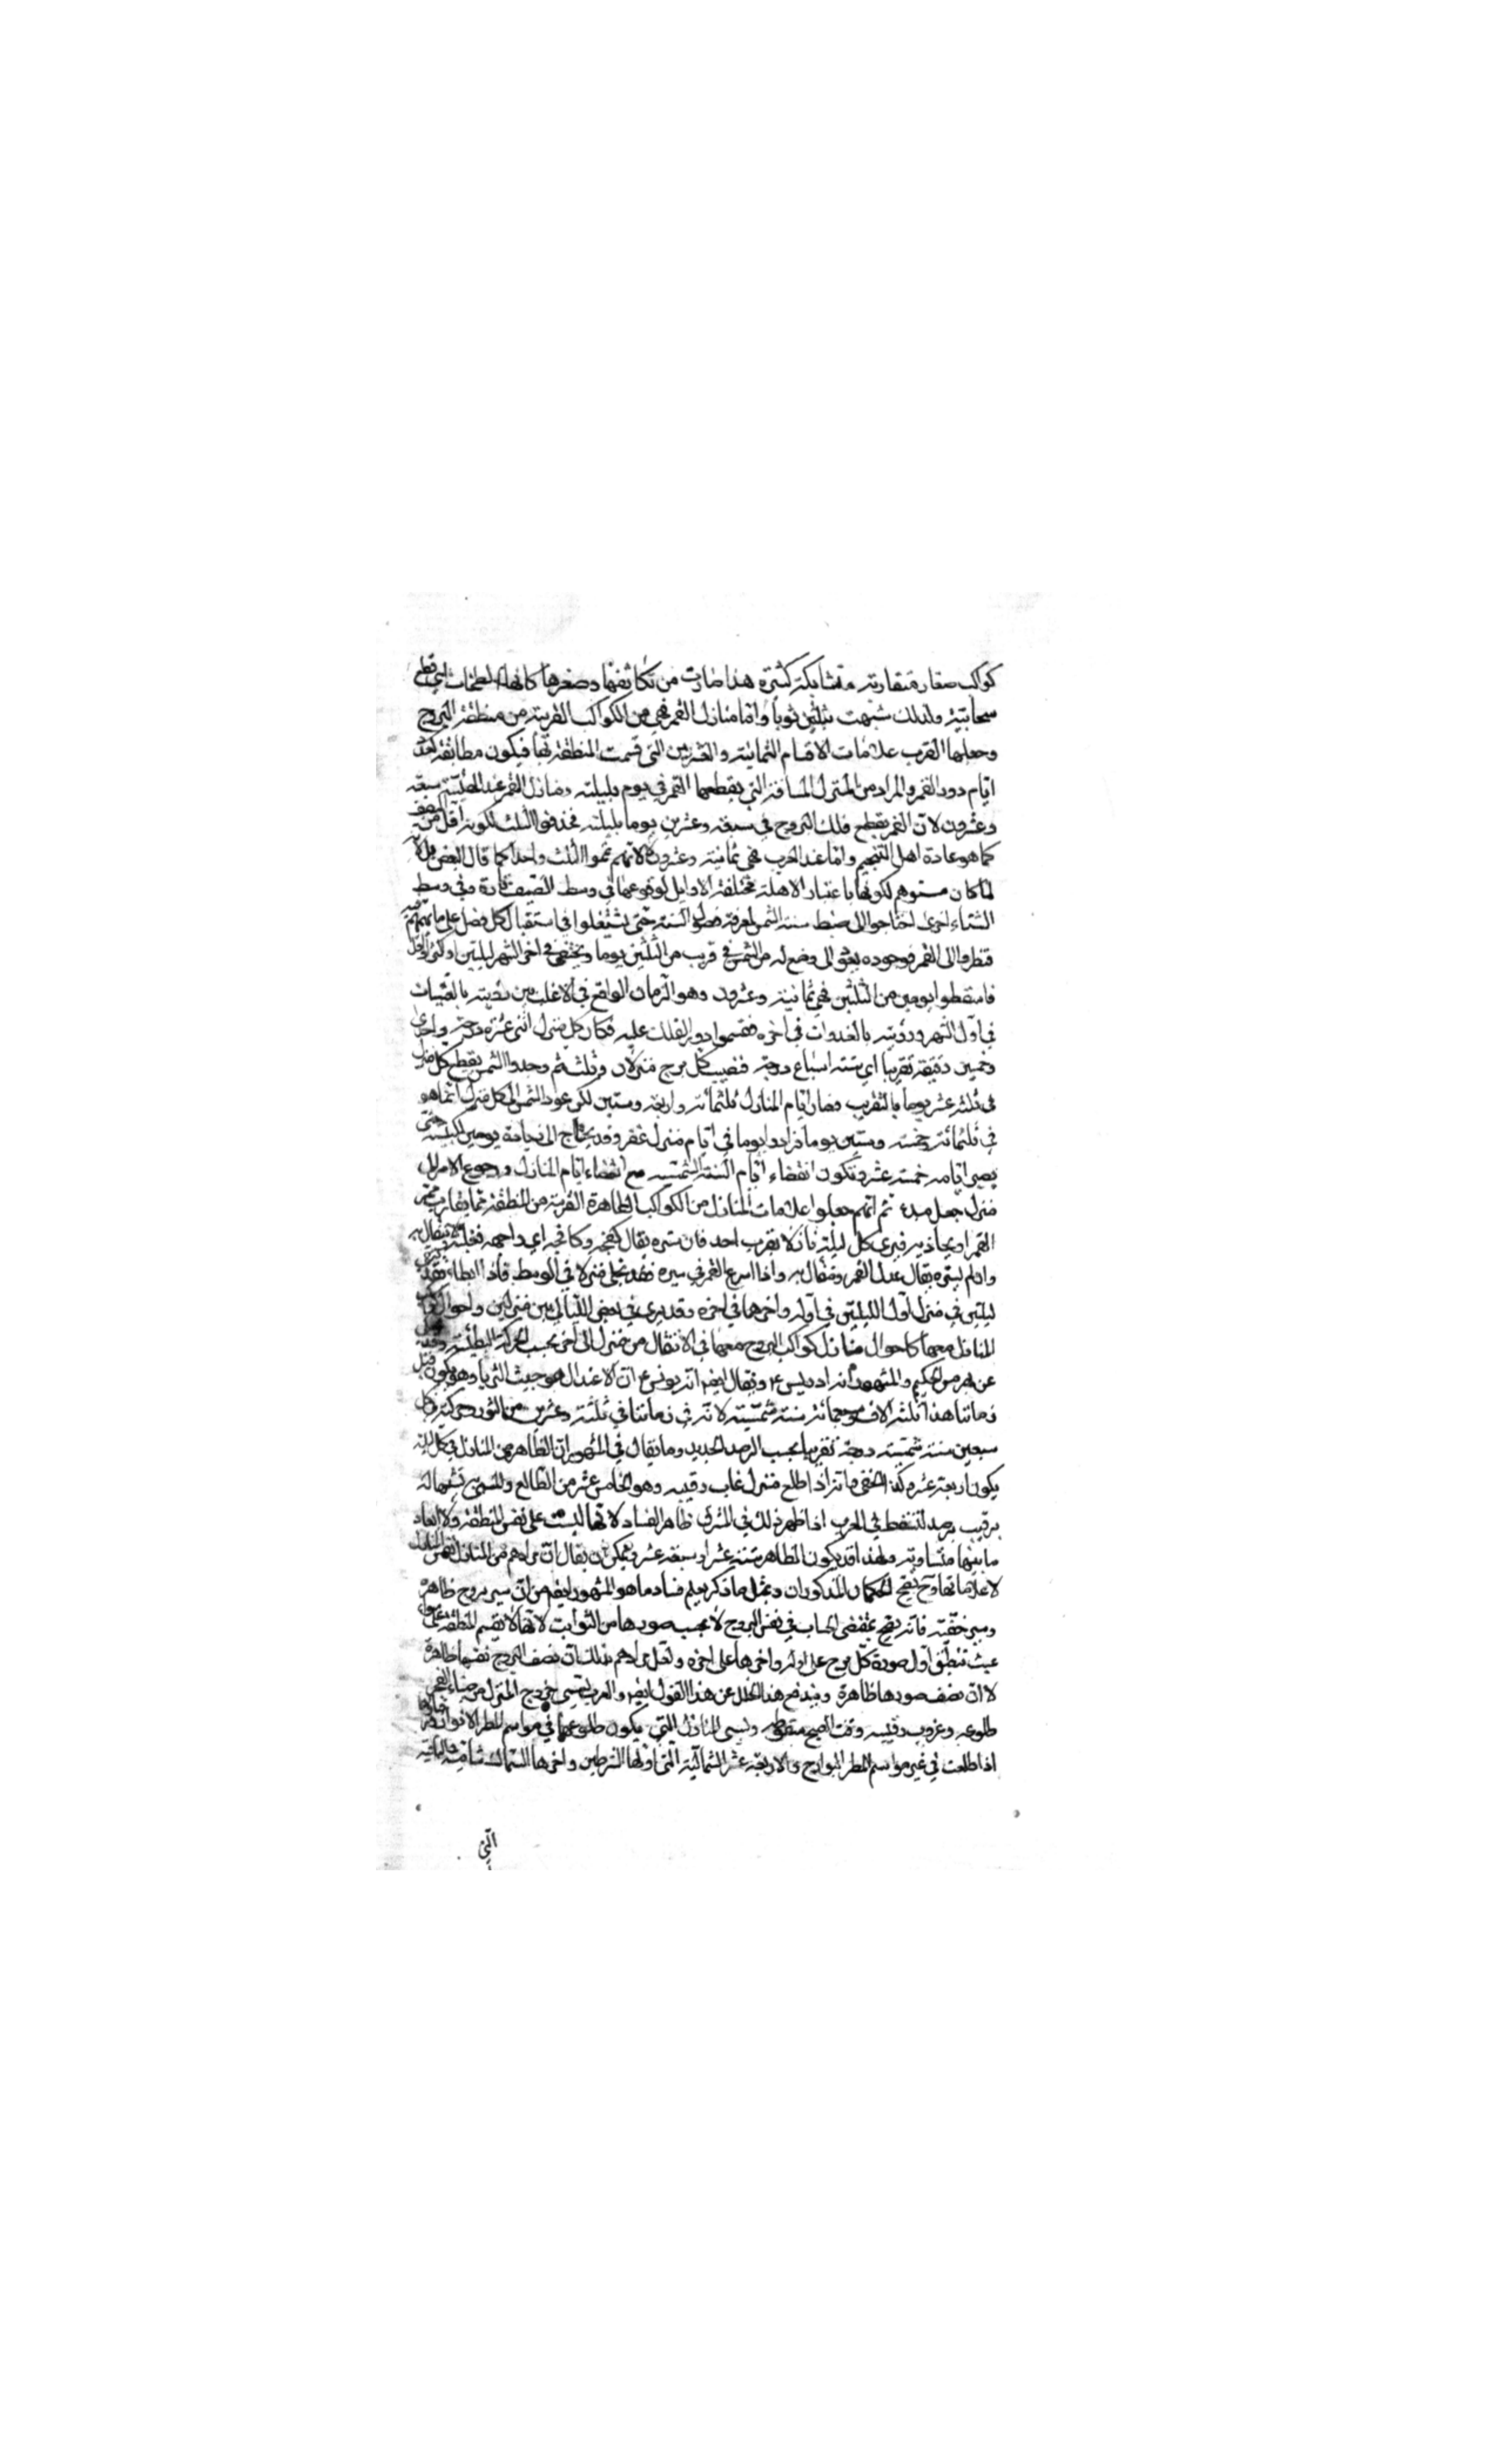 كواكب صغار متقاربة متشابكة كثيرة هذا صارت من تكاثفها وصغرها كأنها لطخات
سحابية ولذلك شبهت باللبن لونا وأما منازل القمر فهي من الكواكب القريبة من منطقة البروج
وجعلها العرب علامات الاقسام الثمانية والعشرين التي قسمت المنطقة بها فيكون مطابقة لعدد
ايام دور القمر والمراد من المنزل المسافة التي يقطعها القمر في يوم بليلته ومنازل القمر عند سبعة
وعشرون لان القمر يقطع فلك البروج في سبعة وعشرين يوما بليلته فحذفوا الثلث لكونه اقل من النصف
كما هو عادة اهل التنجيم واما عند العرب فهي ثمانية وعشرون لانهم تمموا الثلث واحدا كما قال البعض
لما كان سنوهم لكونها باعتبار الاهلة مختلفة الاوايل لوقوعها في وسط الصيف تارة وفي وسط
الشتاء اخرى احتاجوا الى ضبط سنة الشمس لمعرفة فصول السنة حتى يشتغلوا في استقبال كل فصل على ما يهمهم
فنظروا الى القمر فوجدوه يعود الى وضع له من الشمس في قريب من الثلثين يوما ويختفي في اخر الشهر ليلتين
فاسقطوا يومين من الثلثين فهي ثمانية وعشرون وهو الزمان الواقع في الاغلب بين رؤيته بالعشيات
في اول الشهر ورؤيته بالغدوات في اخره فقسموا دور الفلك عليه فكان كل منزل اثنى عشرة درجة واحدى
وخمسين دقيقة تقريبا اي ستة اسباع درجة فنصيب كل برج منزلان وثلث ثم وجدوا الشمس يقطع كل منزل
في ثلثة عشر يوما بالتقريب فصار ايام المنازل ثلثمائة واربعة وستين لكن عود الشمس الى كل منزل انما هو
في ثلثمائة وخمسة وستين يوما فزادوا يوما في ايام منزل غفر وقد يحتاج الى زيادة يومين للكبيسة حتى
يصير ايامه خمسة عشر وتكون انقضاء ايام السنة الشمسية مع انقضاء ايام المنازل ورجوع الامر الى
منزل جعل مبدء ثم انهم جعلوا علامات المنازل من الكواكب الظاهرة القريبة من المنطقة مما يقارب ممر
القمر او يحاذيه فيرى كل ليلة نازلا بقرب احد فان ستره يقال كفحه وكافحه اي واجهه
وان لم يستره يقال عدل القمر واذا اسرع القمر في سيره فقد يخلى منزلا في الوسط واذا ابطاء فقد
ليلتين في منزل اول الليلتين في اوله واخرهما في اخره وقد يرى في بعض الليالي بين منزلين واحوال
المنازل معها كاحوال كواكب البروج معها في الانتقال من منزل الى اخر بحسب الحركة البطيئة
عن هرمس الحكيم والمشهور انه ادريس ع ويقال ايضا انه يونس ع ان الاعتدال هو حيث الثريا وهو يكون قبل
زماننا هذا بثلثة الاف سنة شمسية لانه في زماننا في ثلثة وعشرين من الثور وحركته في كل
سبعين سنة شمسية درجة تقريبا بحسب الرصد الجديد وما يقال في المشهور ان الظاهر من المنازل في كل ليلة
يكون اربعة عشر وكذا الخفي وانه اذا طلع منزل غاب رقيبه وهو الخامس عشر من الطالع وانما سمي تشبيها له
برقيب يرصد ليسقط في الغرب اذا ظهر ذلك في المشرق ظاهر الفساد لانها ليست على نفس المنطقة ولا ابعاد
ما بينها متساوية ولهذا قد يكون الظاهر ستة عشر او سبعة عشر ويمكن ان يقال ان مرادهم من المنازل نفس المنازل
لا علاماتها وح يصح الحكمان المذكوران وبمثل ما ذكر يعلم فساد ما هو المشهور ايضا من ان ستة بروج ظاهرة
وستة خفية فانه يصح بمقتضى الحساب في نفس البروج لا بحسب صورها من الثوابت لانها لا تقسم المنطقة على سواء
بحيث تنطبق اول صورة كل برج على اوله واخرها على اخره ولعل مرادهم بذلك ان نصف البروج نفسها ظاهرة
لا ان نصف صورها ظاهرة ويندفع هذا الخلل عن هذا القول ايضا والعرب تسمي خروج المنزل من ضياء الفجر
طلوعه وغروب رقيبه وقت الصبح سقوطه وتسمى المنازل التي يكون طلوعها في مواسم المطر الانواء
اذا طلعت في غير مواسم المطر البوارح والاربعة عشر الشمالية التي اولها الشرطين واخرها السماك شامية والباقية
التي